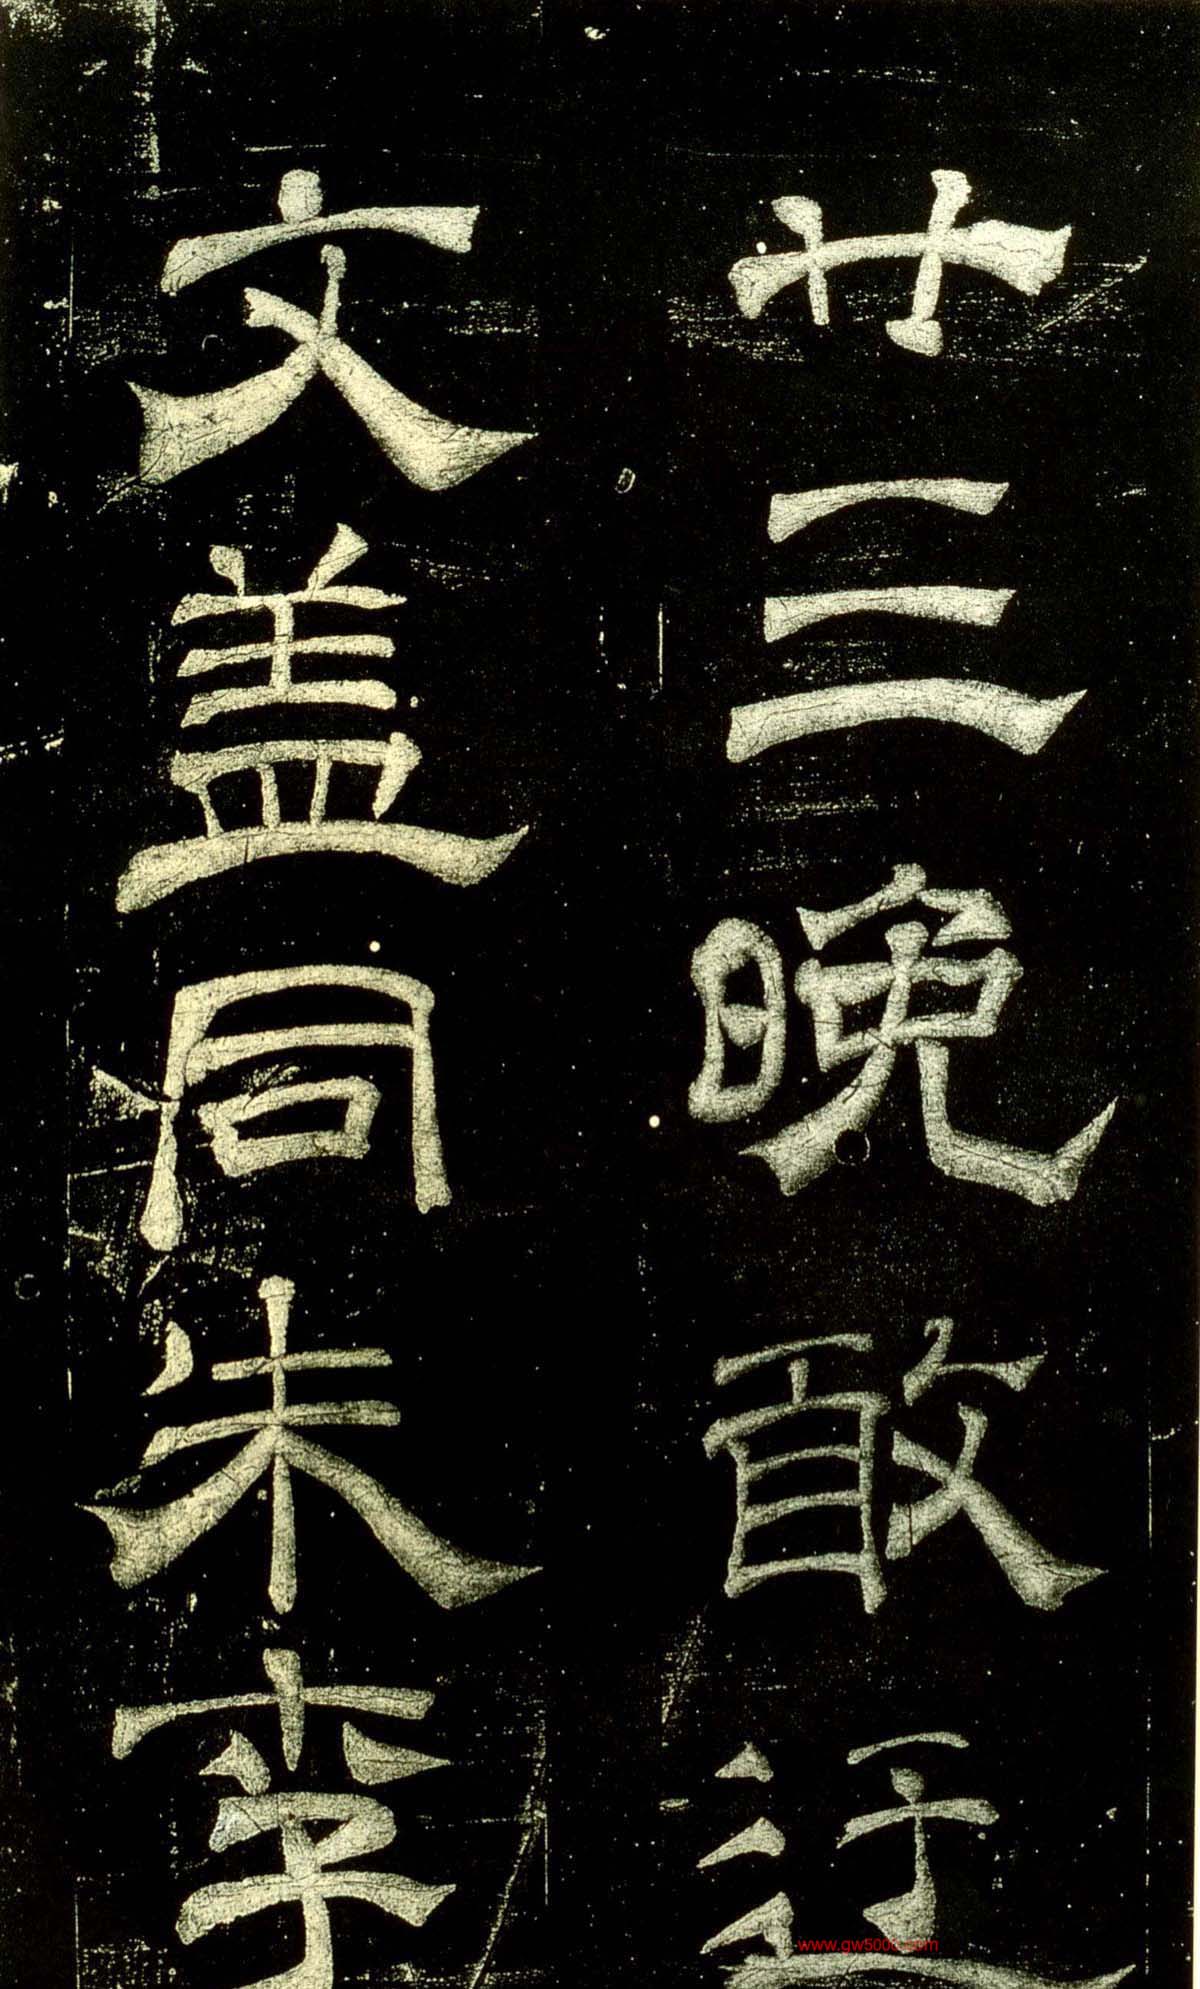 廿三晚敢迂
文盖同朱李
www.gw5000.com